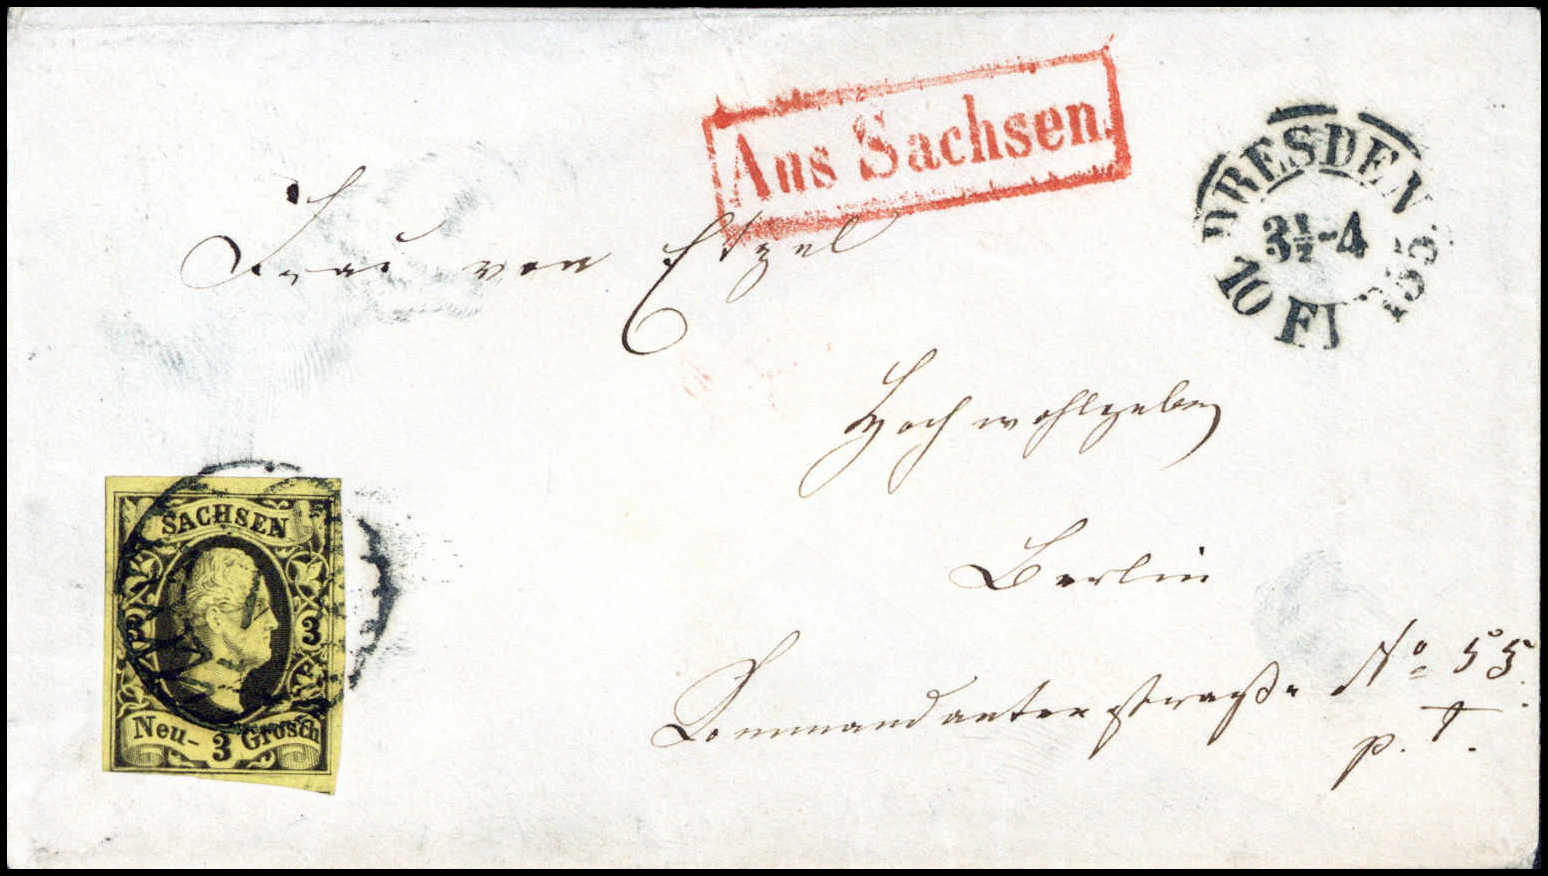 Aus Sachsen.
DRESDEN
3½-4
10 FI 855.
Frau von Etzel
Hochwohlgeben
Berlin
Commandantenstraße No 55.
p. t.
SACHSEN
3 3
Neu- 3 Grosch